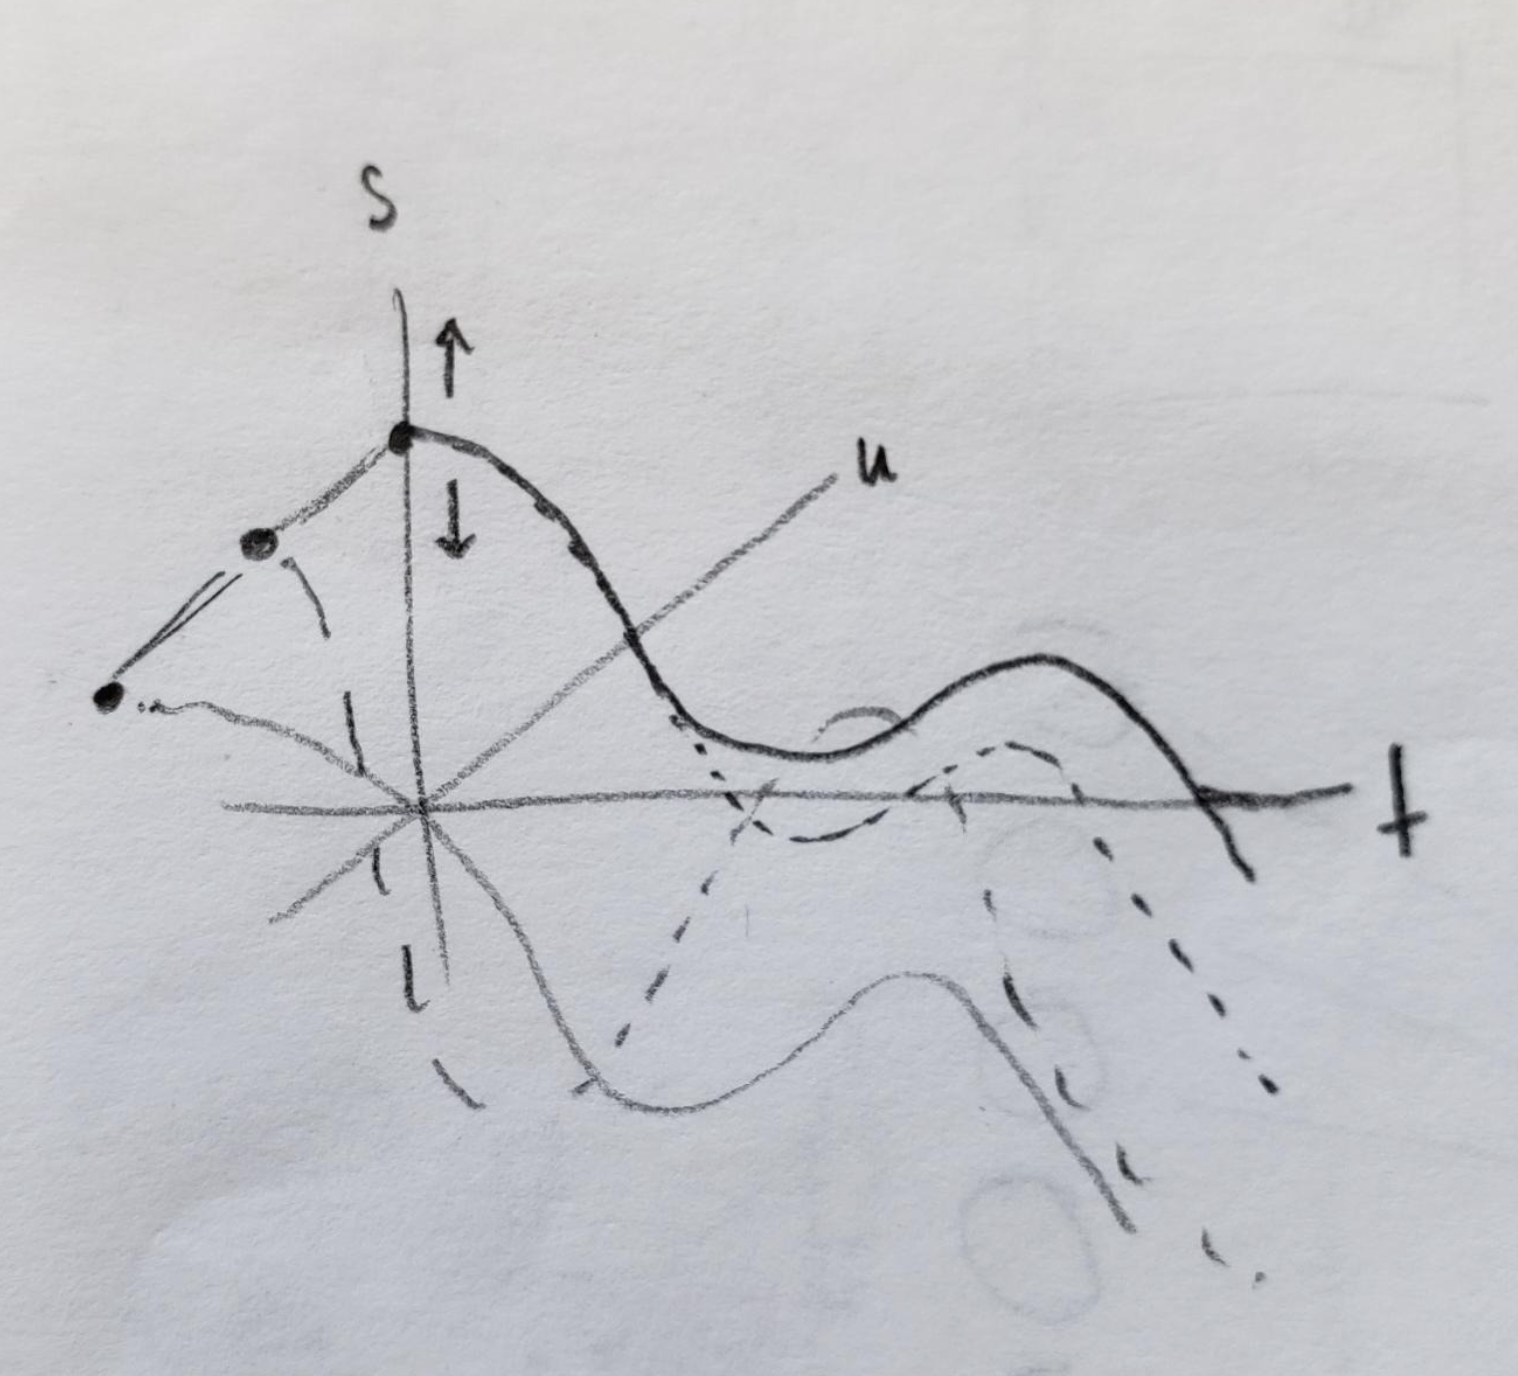 s
u
t